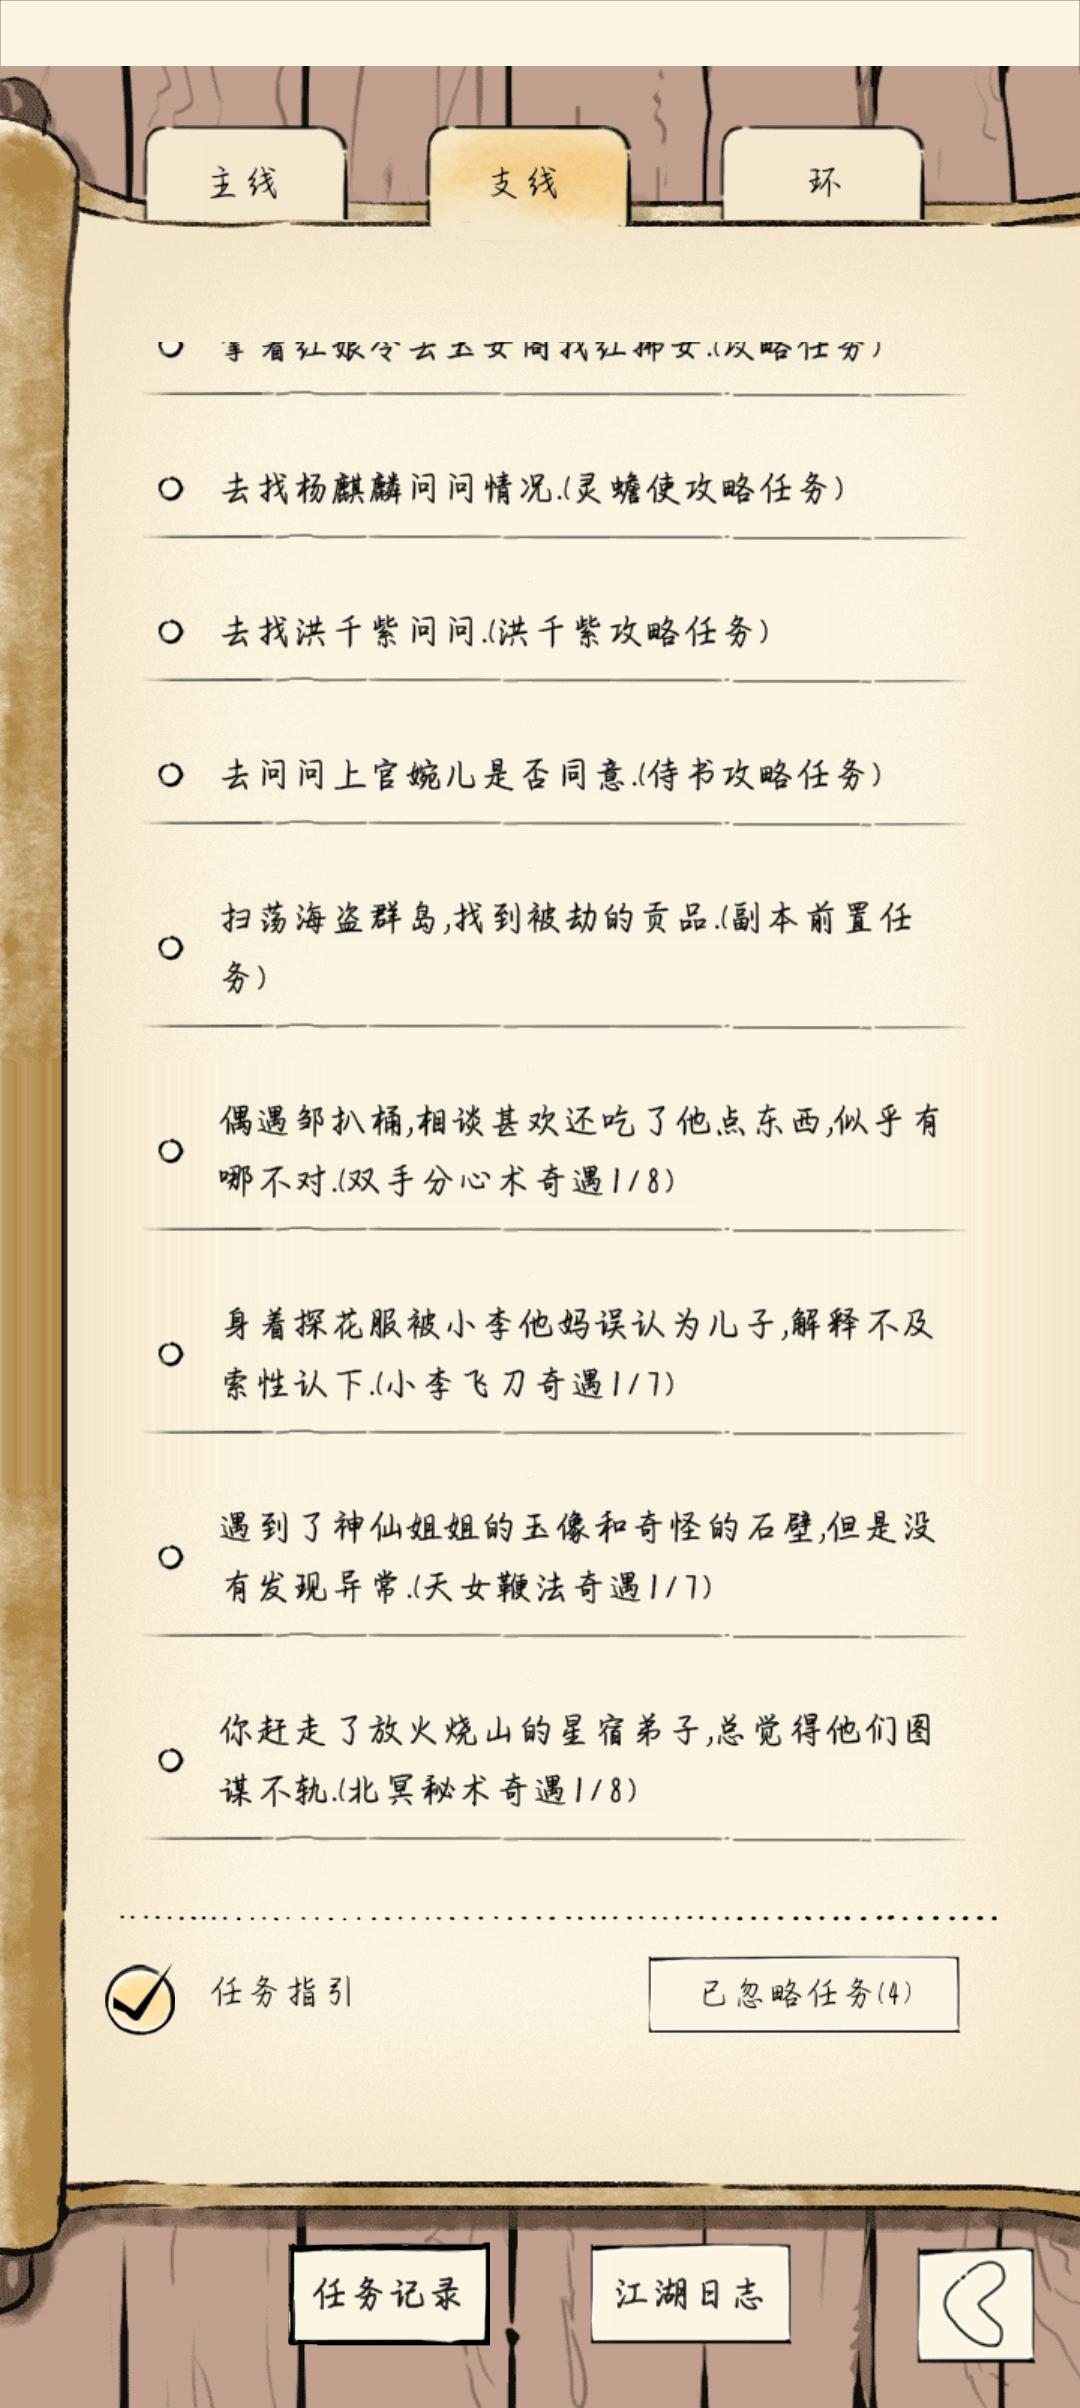 主线
支线
环
拿着红娘令去玉女阁找红拂女.(攻略任务)
去找杨麒麟问问情况.(灵蟾使攻略任务)
去找洪千紫问问.(洪千紫攻略任务)
去问问上官婉儿是否同意.(侍书攻略任务)
扫荡海盗群岛,找到被劫的贡品.(副本前置任
务)
偶遇邹扒桶,相谈甚欢还吃了他点东西,似乎有
哪不对.(双手分心术奇遇1/8)
身着探花服被小李他妈误认为儿子,解释不及
索性认下.(小李飞刀奇遇1/7)
遇到了神仙姐姐的玉像和奇怪的石壁,但是没
有发现异常.(天女鞭法奇遇1/7)
你赶走了放火烧山的星宿弟子,总觉得他们图
谋不轨.(北冥秘术奇遇1/8)
任务指引
已忽略任务(4)
任务记录
江湖日志